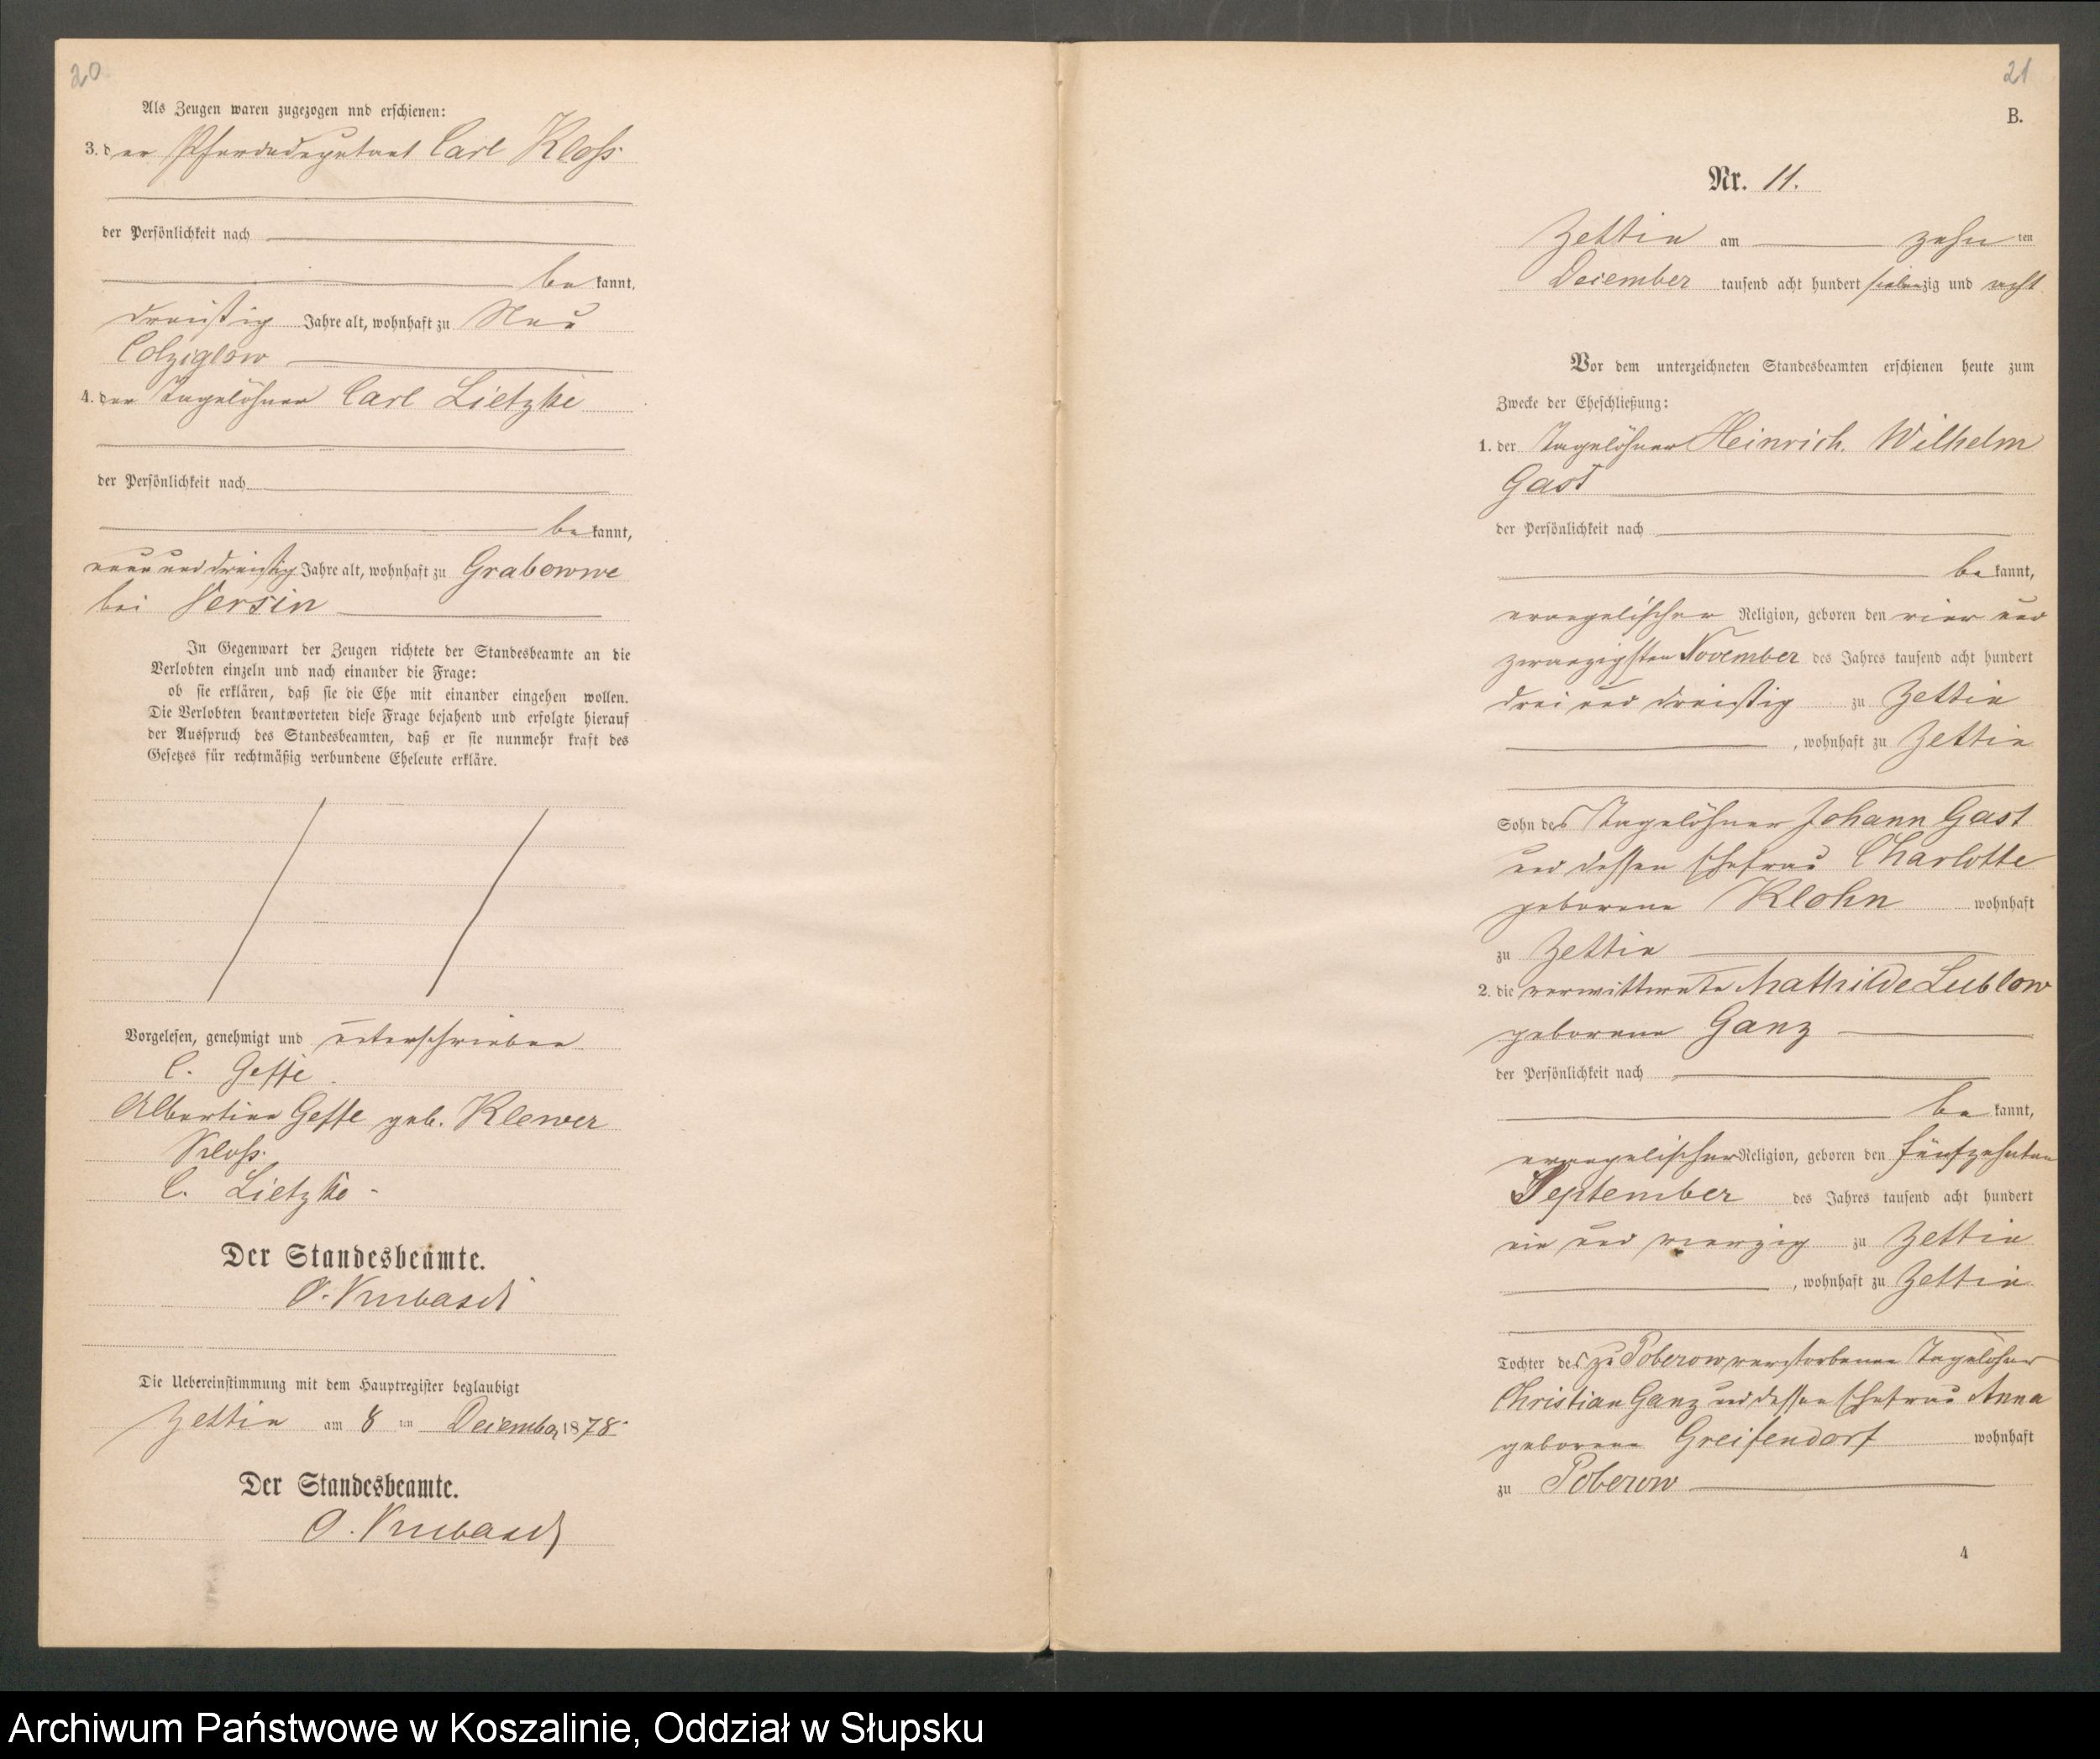 20
Als Zeugen waren zugezogen und erschienen:
3. der Pferdedeputant Carl Kloß
der Persönlichkeit nach
be kannt,
dreißig Jahre alt, wohnhaft zu Neu
Colziglow
4. der Tagelöhner Carl Lietzke
der Persönlichkeit nach
be kannt,
neun und dreißig Jahre alt, wohnhaft zu Grabowwe
bei Versin
In Gegenwart der Zeugen richtete der Standesbeamte an die
Verlobten einzeln und nach einander die Frage:
ob sie erklären, daß sie die Ehe mit einander eingehen wollen.
Die Verlobten beantworteten diese Frage bejahend und erfolgte hierauf
der Ausspruch des Standesbeamten, daß er sie nunmehr kraft des
Gesetzes für rechtmäßig verbundene Eheleute erkläre.
Vorgelesen, genehmigt und unterschrieben
C. Geffe
Albertine Geffe geb. Klewer
Kloß.
C. Lietzke
Der Standesbeamte.
Die Uebereinstimmung mit dem Hauptregister beglaubigt
Zettin am 8 ten December 1878.
Der Standesbeamte.
21
B.
Nr. 11.
Zettin am zehn ten
December tausend acht hundert siebenzig und acht
Vor dem unterzeichneten Standesbeamten erschienen heute zum
Zwecke der Eheschließung:
1. der Tagelöhner Heinrich Wilhelm
Gast
der Persönlichkeit nach
be kannt,
evangelischer Religion, geboren den vier und
zwanzigsten November des Jahres tausend acht hundert
drei und dreißig zu Zettin
, wohnhaft zu Zettin
Sohn des Tagelöhner Johann Gast
und dessen Ehefrau Charlotte
geborene Klohn wohnhaft
zu Zettin
2. die verwittwete Mathilde Lublow
geborene Ganz
der Persönlichkeit nach
be kannt,
evangelischer Religion, geboren den fünfzehnten
September des Jahres tausend acht hundert
ein und vierzig zu Zettin
, wohnhaft zu Zettin
Tochter des zu Poberow verstorbenen Tagelöhner
Christian Ganz und dessen Ehefrau Anna
geborene Greifendorf wohnhaft
zu Poberow
4
Archiwum Państwowe w Koszalinie, Oddział w Słupsku